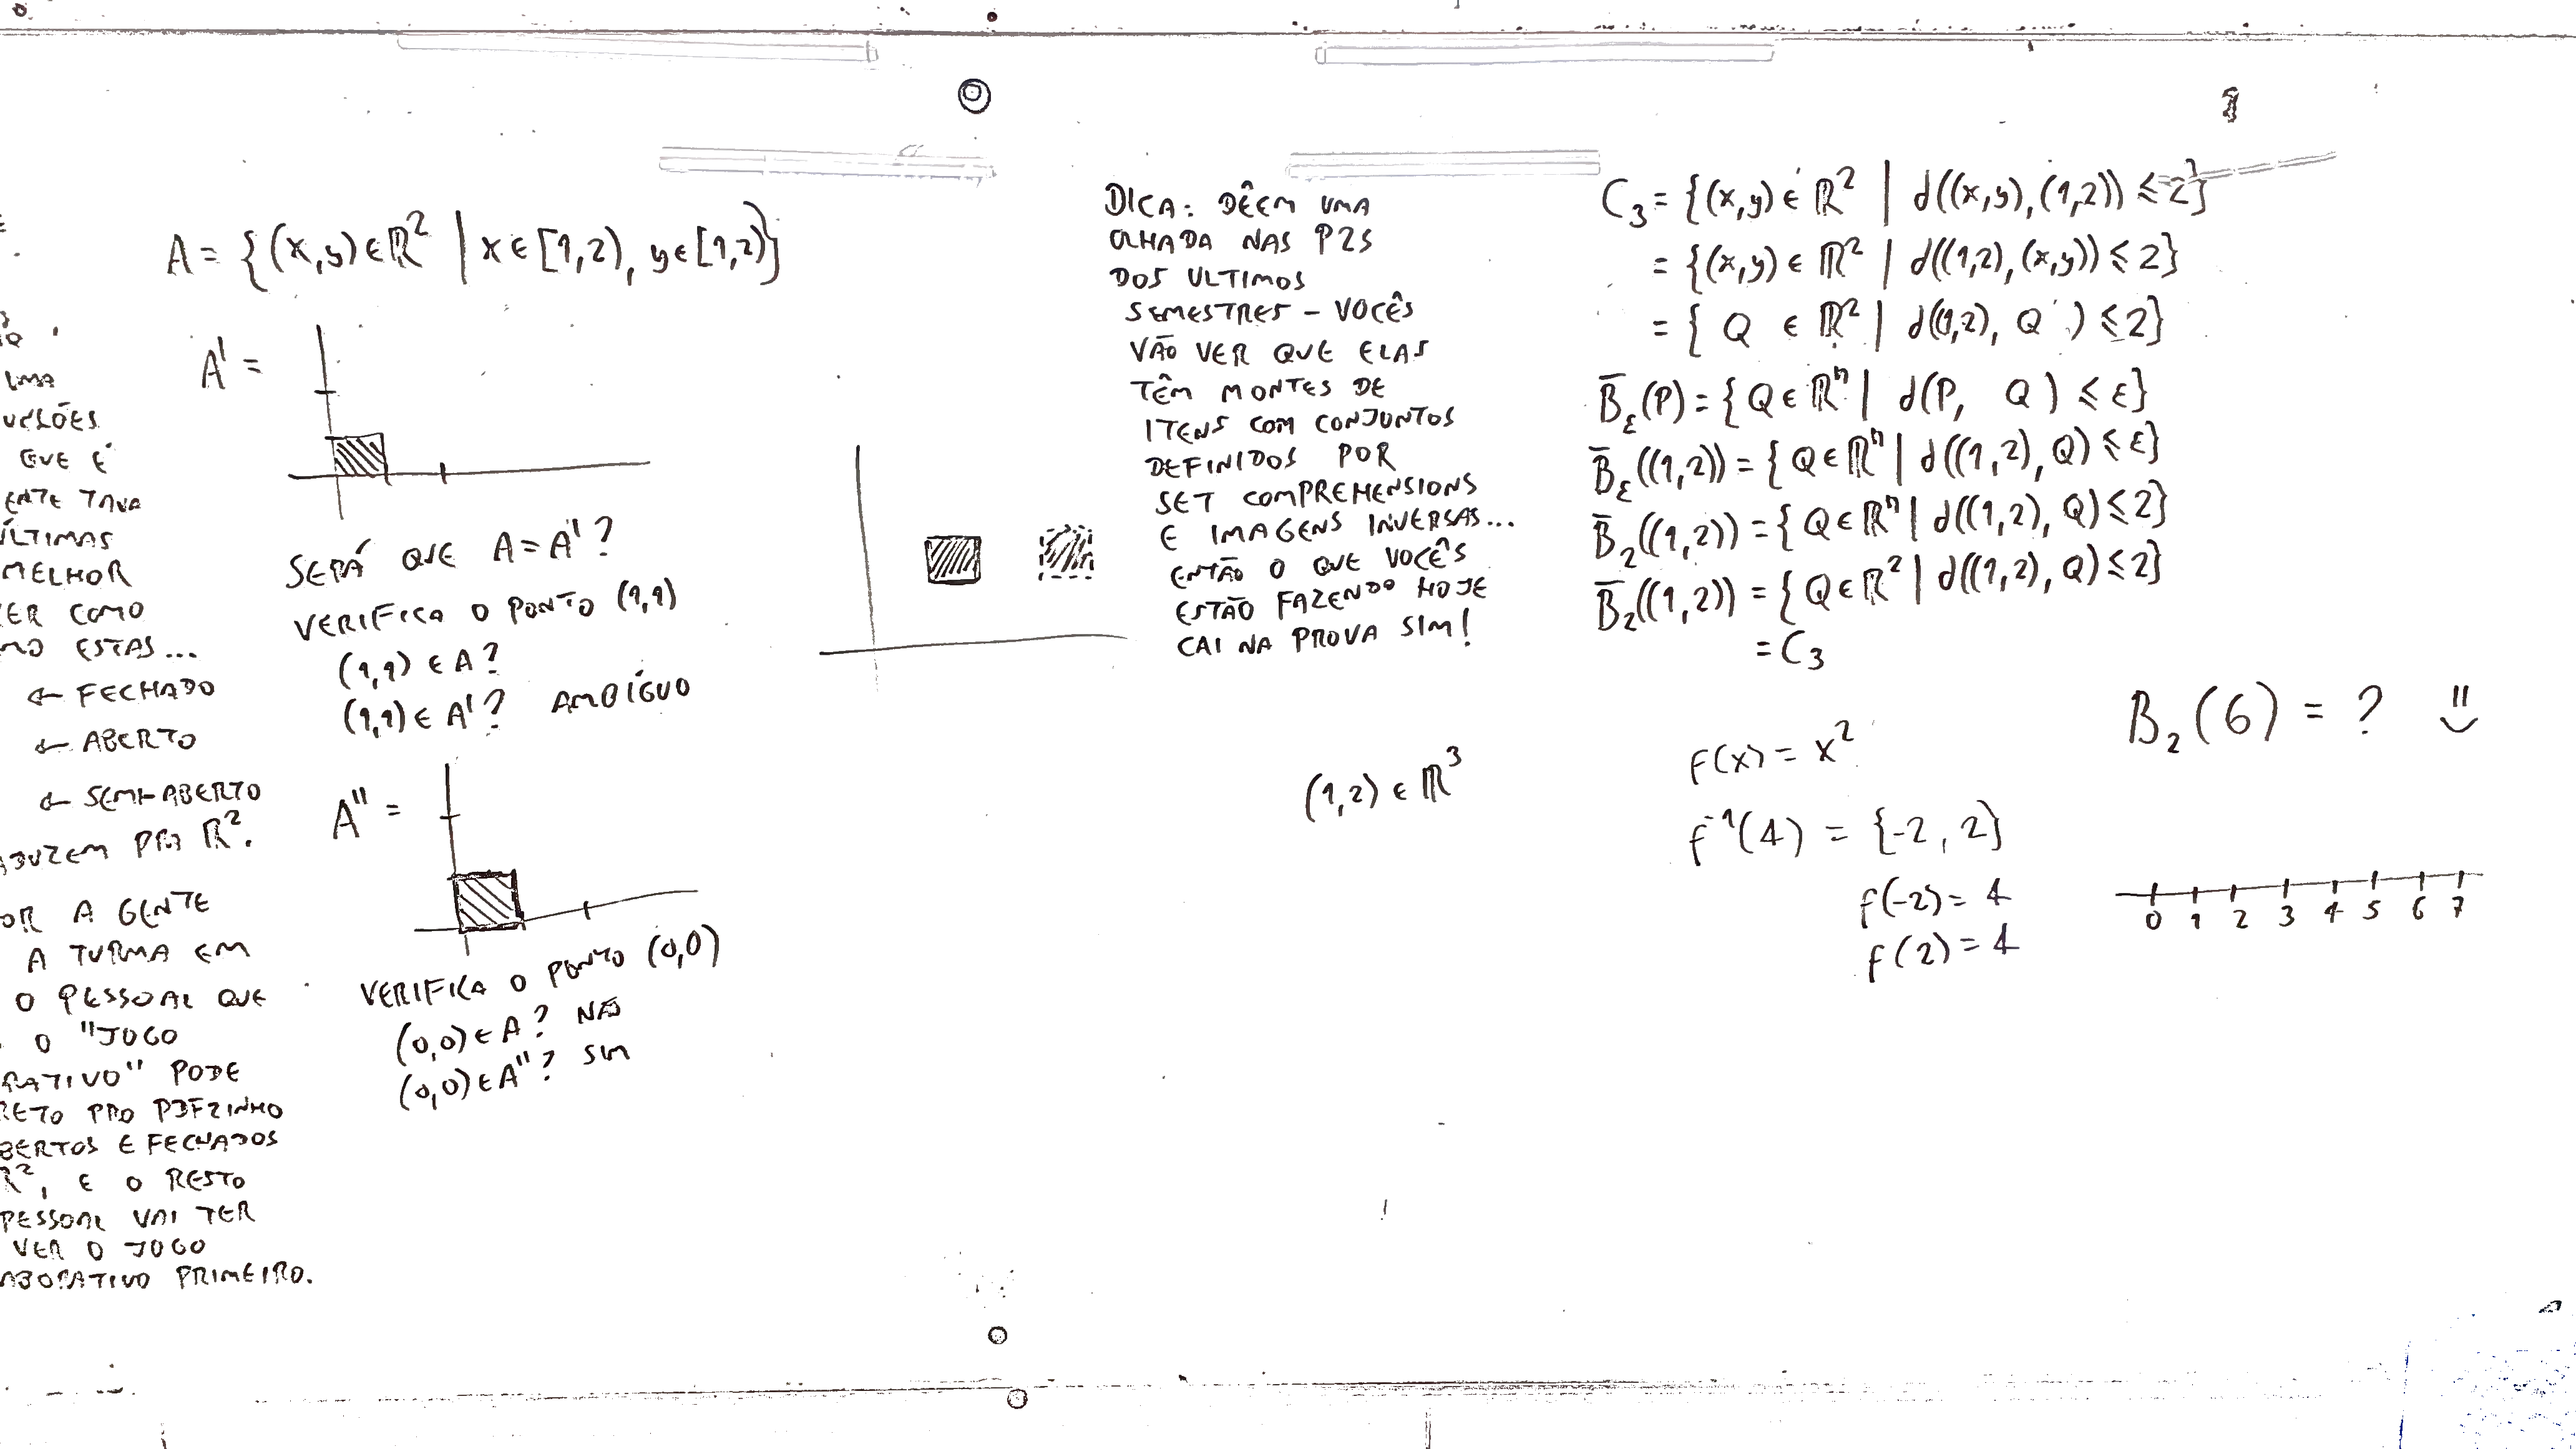 UMA
QUE É
ENTE TAVA
ÚLTIMAS
MELHOR
COMO
ESTAS...
← FECHADO
← ABERTO
← SEMI-ABERTO
PRA ℝ².
A GENTE
A TURMA EM
O PESSOAL QUE
O "JOGO
RATIVO" PODE
RETO PRO PDFZINHO
BERTOS E FECHADOS
ℝ², E O RESTO
PESSOAL VAI TER
VER O JOGO
ABORATIVO PRIMEIRO.
A = {(x,y) ∈ ℝ² | x ∈ [1,2), y ∈ [1,2)}
A' =
SERÁ QUE A = A' ?
VERIFICA O PONTO (1,1)
(1,1) ∈ A?
(1,1) ∈ A'? AMBÍGUO
A'' =
VERIFICA O PONTO (0,0)
(0,0) ∈ A? NÃO
(0,0) ∈ A''? SIM
DICA: DÊEM UMA
OLHADA NAS P2S
DOS ULTIMOS
SEMESTRES – VOCÊS
VÃO VER QUE ELAS
TÊM MONTES DE
ITENS COM CONJUNTOS
DEFINIDOS POR
SET COMPREHENSIONS
E IMAGENS INVERSAS...
ENTÃO O QUE VOCÊS
ESTÃO FAZENDO HOJE
CAI NA PROVA SIM!
(1,2) ∈ ℝ³
C₃ = {(x,y) ∈ ℝ² | d((x,y),(1,2)) ≤ 2}
= {(x,y) ∈ ℝ² | d((1,2),(x,y)) ≤ 2}
= { Q ∈ ℝ² | d((1,2), Q ) ≤ 2}
B̄_ε(P) = {Q ∈ ℝⁿ | d(P, Q) ≤ ε}
B̄_ε((1,2)) = {Q ∈ ℝⁿ | d((1,2), Q) ≤ ε}
B̄₂((1,2)) = {Q ∈ ℝⁿ | d((1,2), Q) ≤ 2}
B̄₂((1,2)) = {Q ∈ ℝ² | d((1,2), Q) ≤ 2}
= C₃
B₂(6) = ?
f(x) = x²
f⁻¹(4) = {-2, 2}
f(-2) = 4
f(2) = 4
0 1 2 3 4 5 6 7